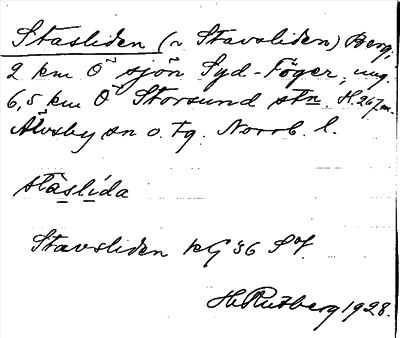 Stasliden (~ Stavsliden) Berg,
2 km Ö sjön Syd-Föger, ung.
6,5 km Ö Storsund stn. H. 267 m.
Älvsby sn o. tg. Norrb. l.
stàslída
Stavsliden kG 36 Söf.
H. Rutberg 1928.